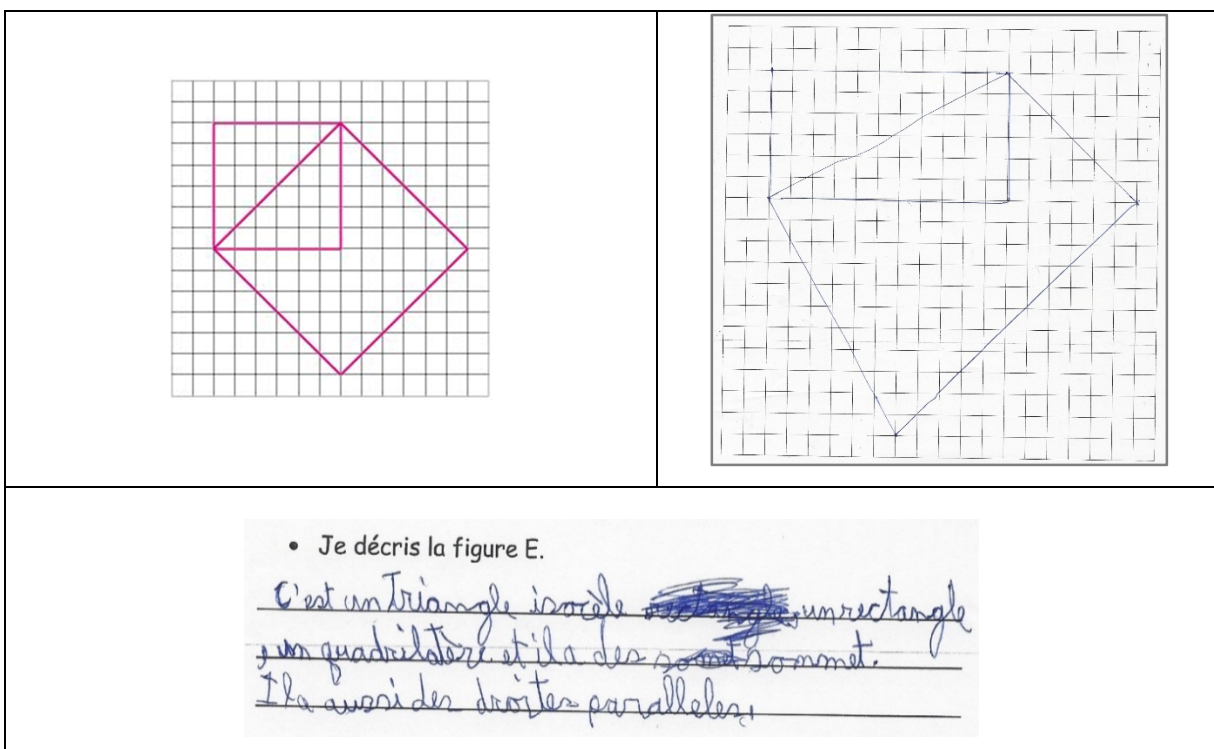 • Je décris la figure E.
C'est un triangle isocèle rectangle, un rectangle
, un quadrilatère et il a des somet sommet.
Il a aussi des droites paralleles.